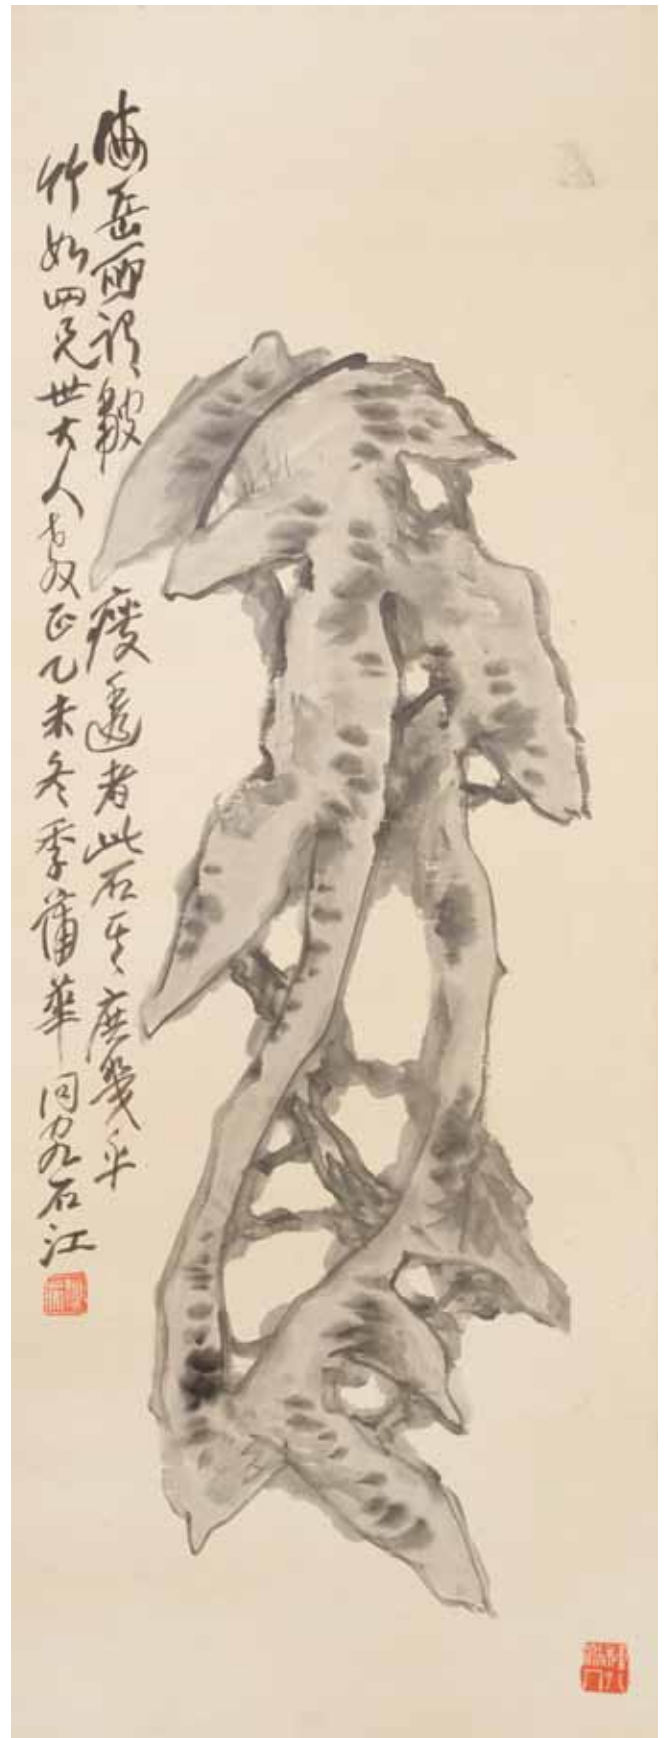 海岳所謂皺瘦透者此石其庶幾乎
竹如四兄世大人教正乙未冬季蒲華同客石江